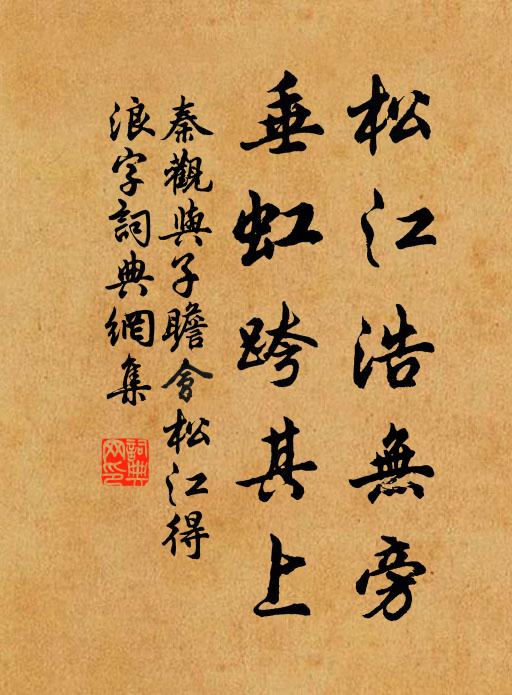 松江浩無旁
垂虹跨其上
秦觀與子瞻會松江得
浪字詞典網集
詞典网印